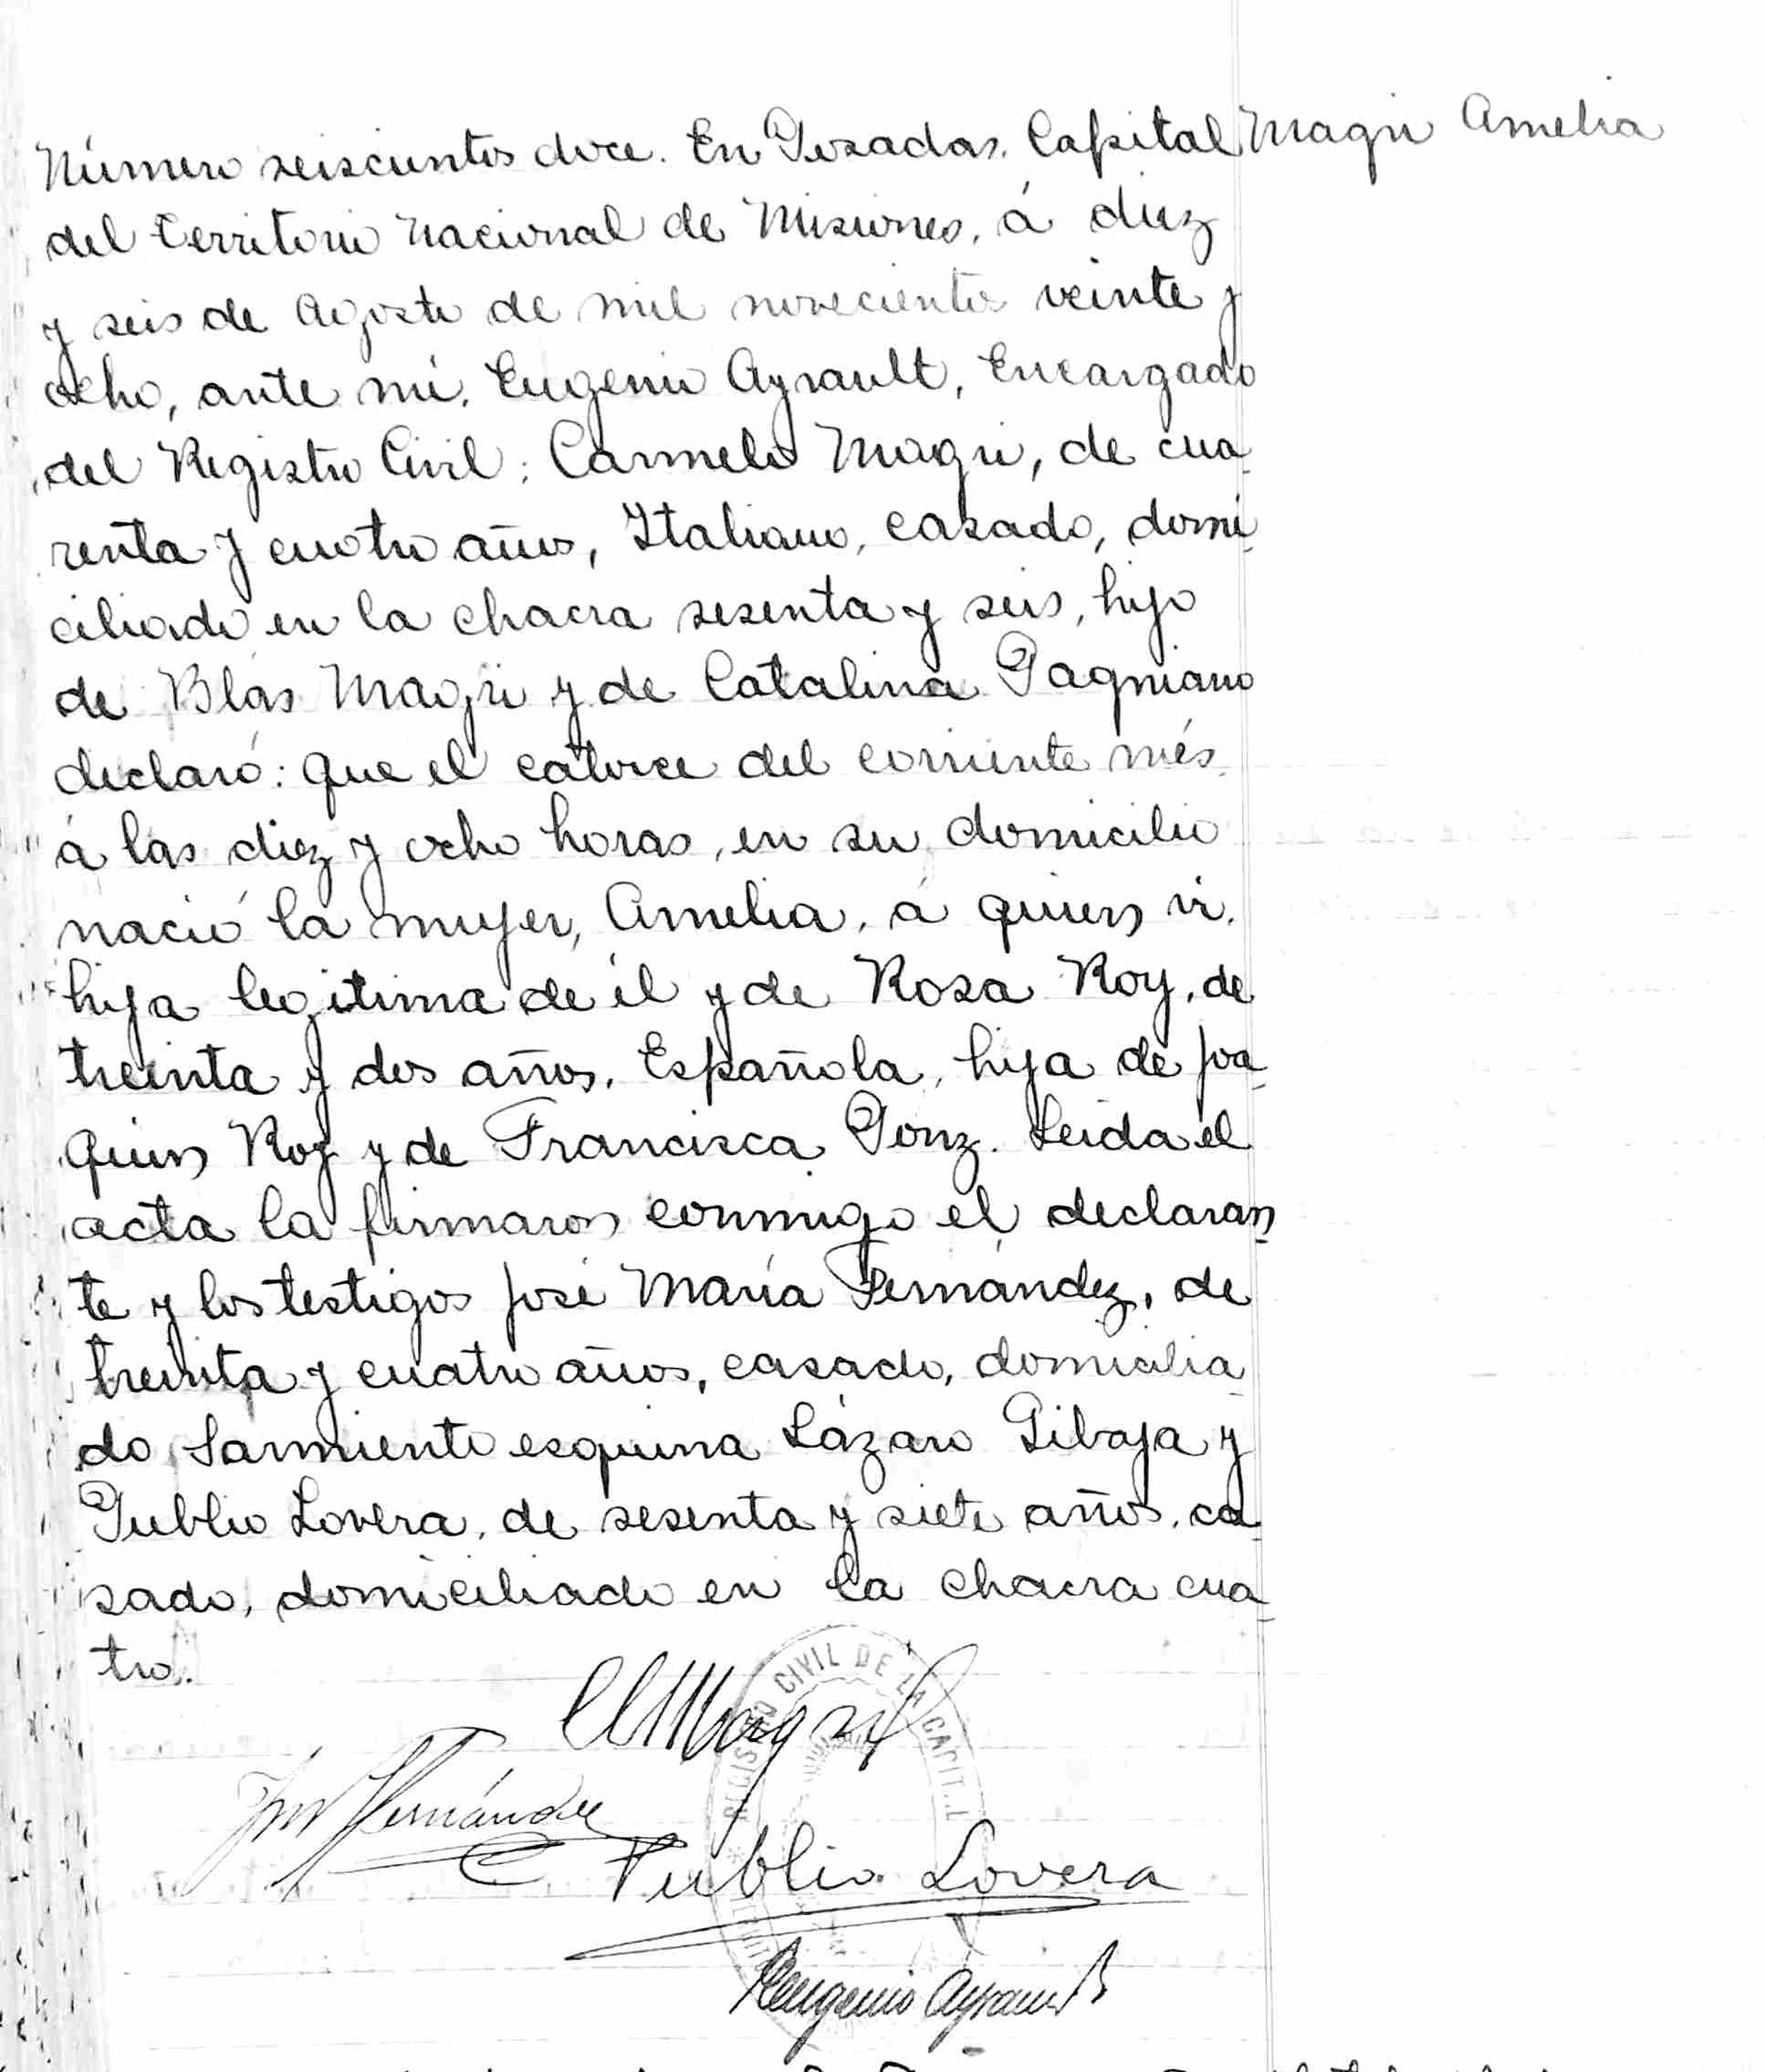 Número seiscientos doce. En Posadas, Capital
Magri Amelia
del Territorio Nacional de Misiones, á diez
y seis de Agosto de mil novecientos veinte y
ocho, ante mí, Eugenio Ayrault, Encargado
del Registro Civil: Carmelo Magri, de cua-
renta y cuatro años, Italiano, casado, domi-
ciliado en la chacra sesenta y seis, hijo
de Blás Magri y de Catalina Pagniano
declaró: que el catorce del corriente més
á las diez y ocho horas, en su domicilio
nació la mujer, Amelia, á quien ví,
hija legitima de él y de Rosa Roy, de
treinta y dos años, Española, hija de Joa-
quin Roy y de Francisca Ponz. Leida el
acta la firmaron conmigo el declaran-
te y los testigos José María Fernández, de
treinta y cuatro años, casado, domicilia-
do Sarmiento esquina Lázaro Gibaja y
Publio Lovera, de sesenta y siete años, ca-
sado, domiciliado en la chacra cua-
tro.
REGISTRO CIVIL DE LA CAPITAL
Magri
Fernández
Publio Lovera
Eugenio Ayrault